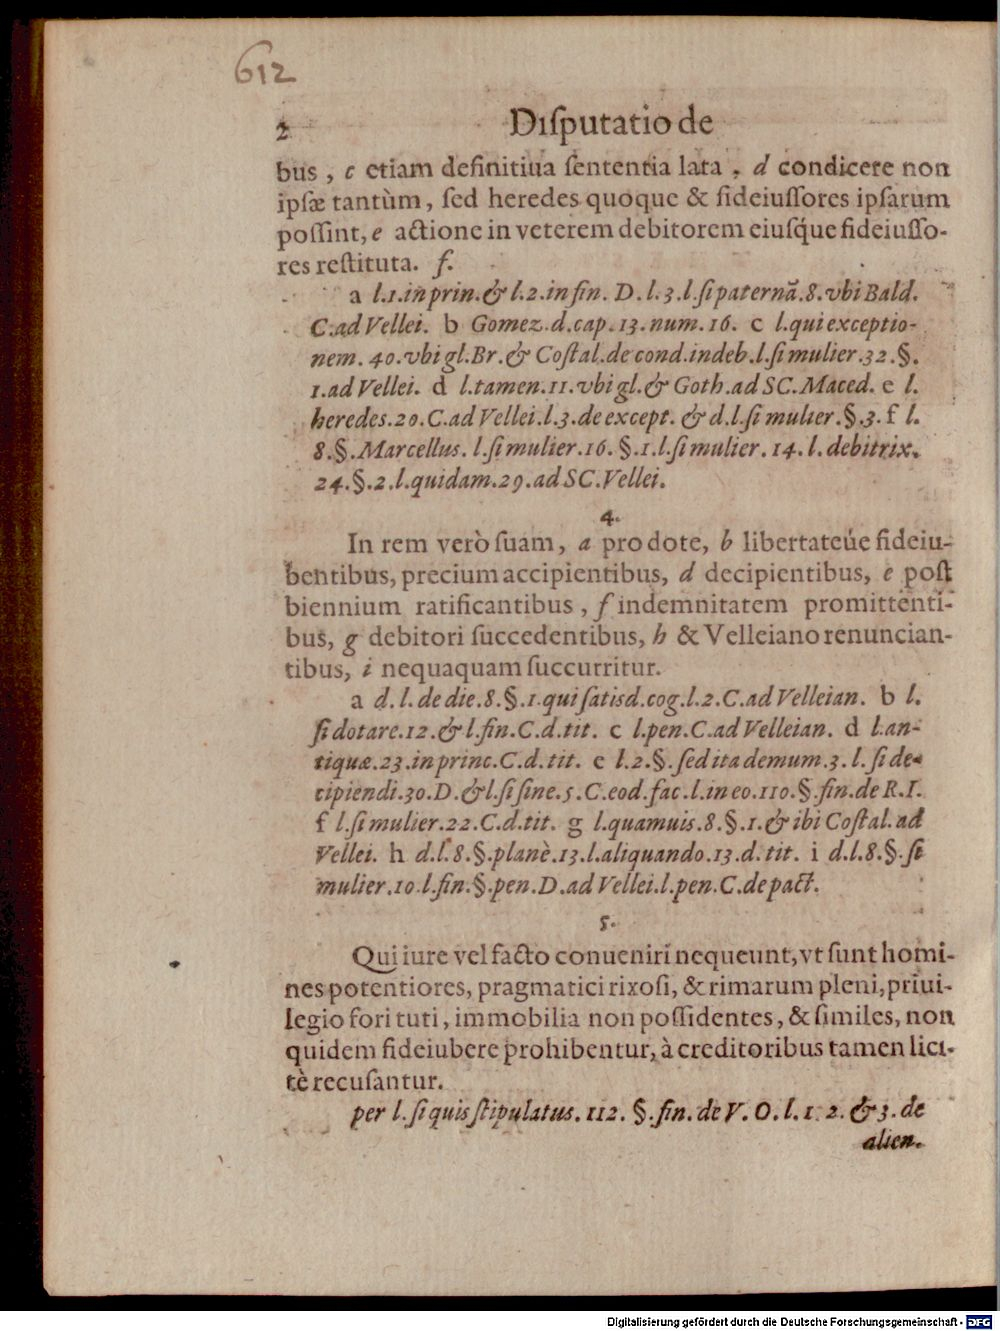 612
2 Diſputatio de
bus, c etiam definitiua ſententia lata, d condicere non
ipſæ tantùm, ſed heredes quoque & fideiuſſores ipſarum
poſſint, e actione in veterem debitorem eiuſq́ue fideiuſſo-
res reſtituta. f.
a l.1.in prin. & l.2.in fin. D. l.3.l.ſi paternã.8.vbi Bald.
C.ad Vellei. b Gomez.d.cap.13.num.16. c l.qui exceptio-
nem.40.vbi gl.Br.& Coſtal.de cond.indeb.l.ſi mulier.32.§.
1.ad Vellei. d l.tamen.11.vbi gl.& Goth.ad SC.Maced. e l.
heredes.20.C.ad Vellei.l.3.de except. & d.l.ſi mulier.§.3. f l.
8.§.Marcellus. l.ſi mulier.16.§.1.l.ſi mulier.14.l.debitrix.
24.§.2.l.quidam.29.ad SC.Vellei.
4.
In rem verò ſuam, a pro dote, b libertateúe fideiu-
bentibus, precium accipientibus, d decipientibus, e poſt
biennium ratificantibus, f indemnitatem promittenti-
bus, g debitori ſuccedentibus, h & Velleiano renuncian-
tibus, i nequaquam ſuccurritur.
a d.l.de die.8.§.1.qui ſatisd.cog.l.2.C.ad Velleian. b l.
ſi dotare.12.& l.fin.C.d.tit. c l.pen.C.ad Velleian. d l.an-
tiquæ.23.in princ.C.d.tit. e l.2.§.ſed ita demum.3.l.ſi de-
cipiendi.30.D.& l.ſi ſine.5.C.eod.fac.l.in eo.110.§.fin.de R.I.
f l.ſi mulier.22.C.d.tit. g l.quamuis.8.§.1.& ibi Coſtal.ad
Vellei. h d.l.8.§.planè.13.l.aliquando.13.d.tit. i d.l.8.§.ſi
mulier.10.l.fin.§.pen.D.ad Vellei.l.pen.C.de pact.
5.
Qui iure vel facto conueniri nequeunt, vt ſunt homi-
nes potentiores, pragmatici rixoſi, & rimarum pleni, priui-
legio fori tuti, immobilia non poſſidentes, & ſimiles, non
quidem fideiubere prohibentur, à creditoribus tamen lici-
tè recuſantur.
per l.ſi quis ſtipulatus.112.§.fin.de V.O.l.1.2.& 3.de
alien.
Digitalisierung gefördert durch die Deutsche Forschungsgemeinschaft - DFG